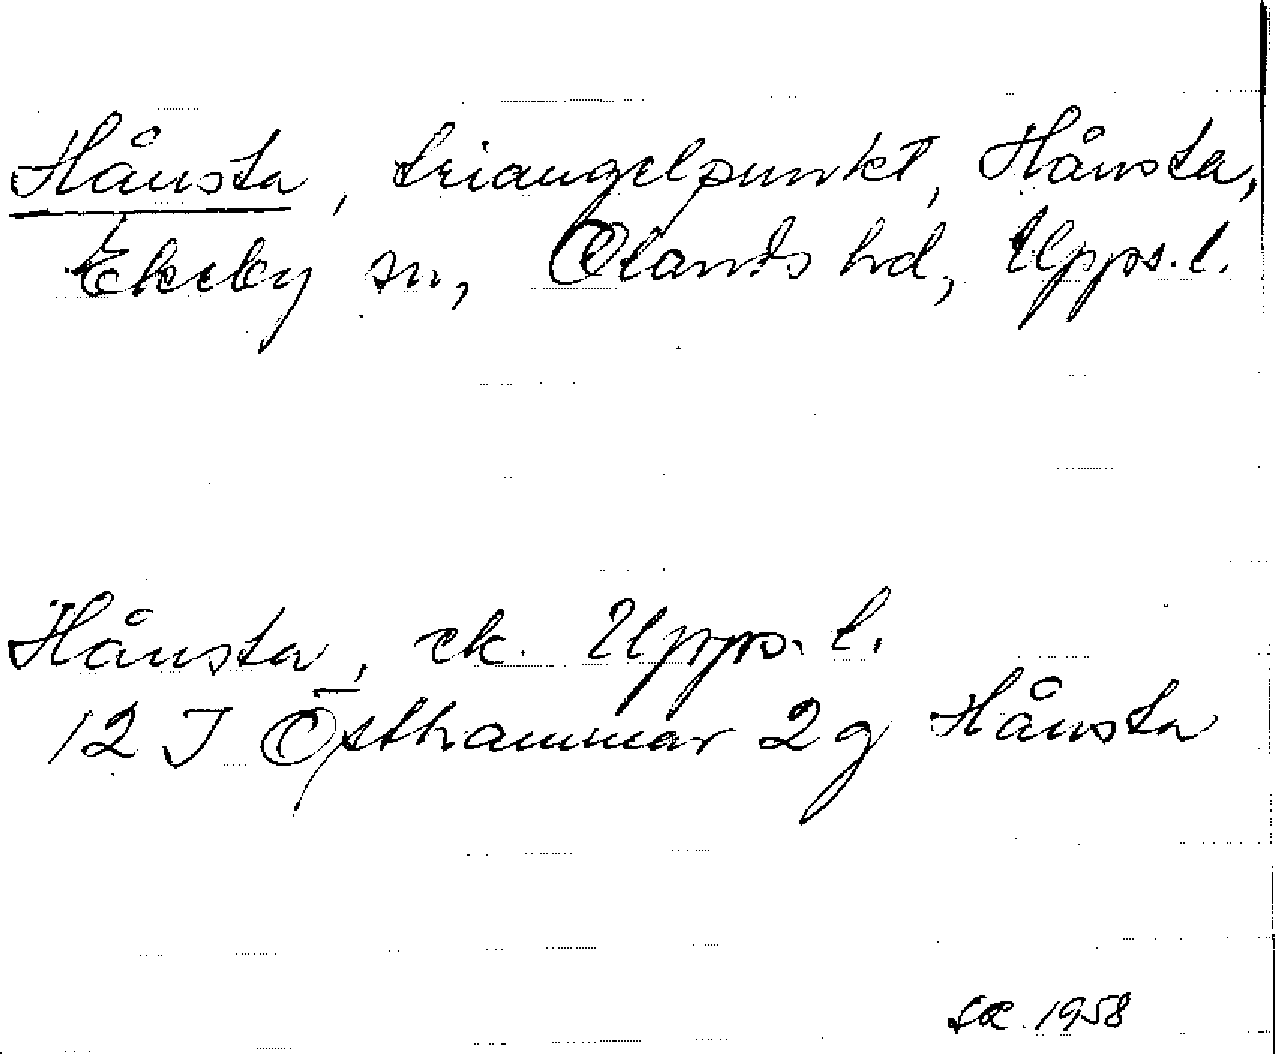 Hånsta, triangelpunkt, Hånsta,
Ekeby sn, Olands hd, Upps. l.
Hånsta, ek. Upps. l.
12 I Östhammar 2g Hånsta
1958